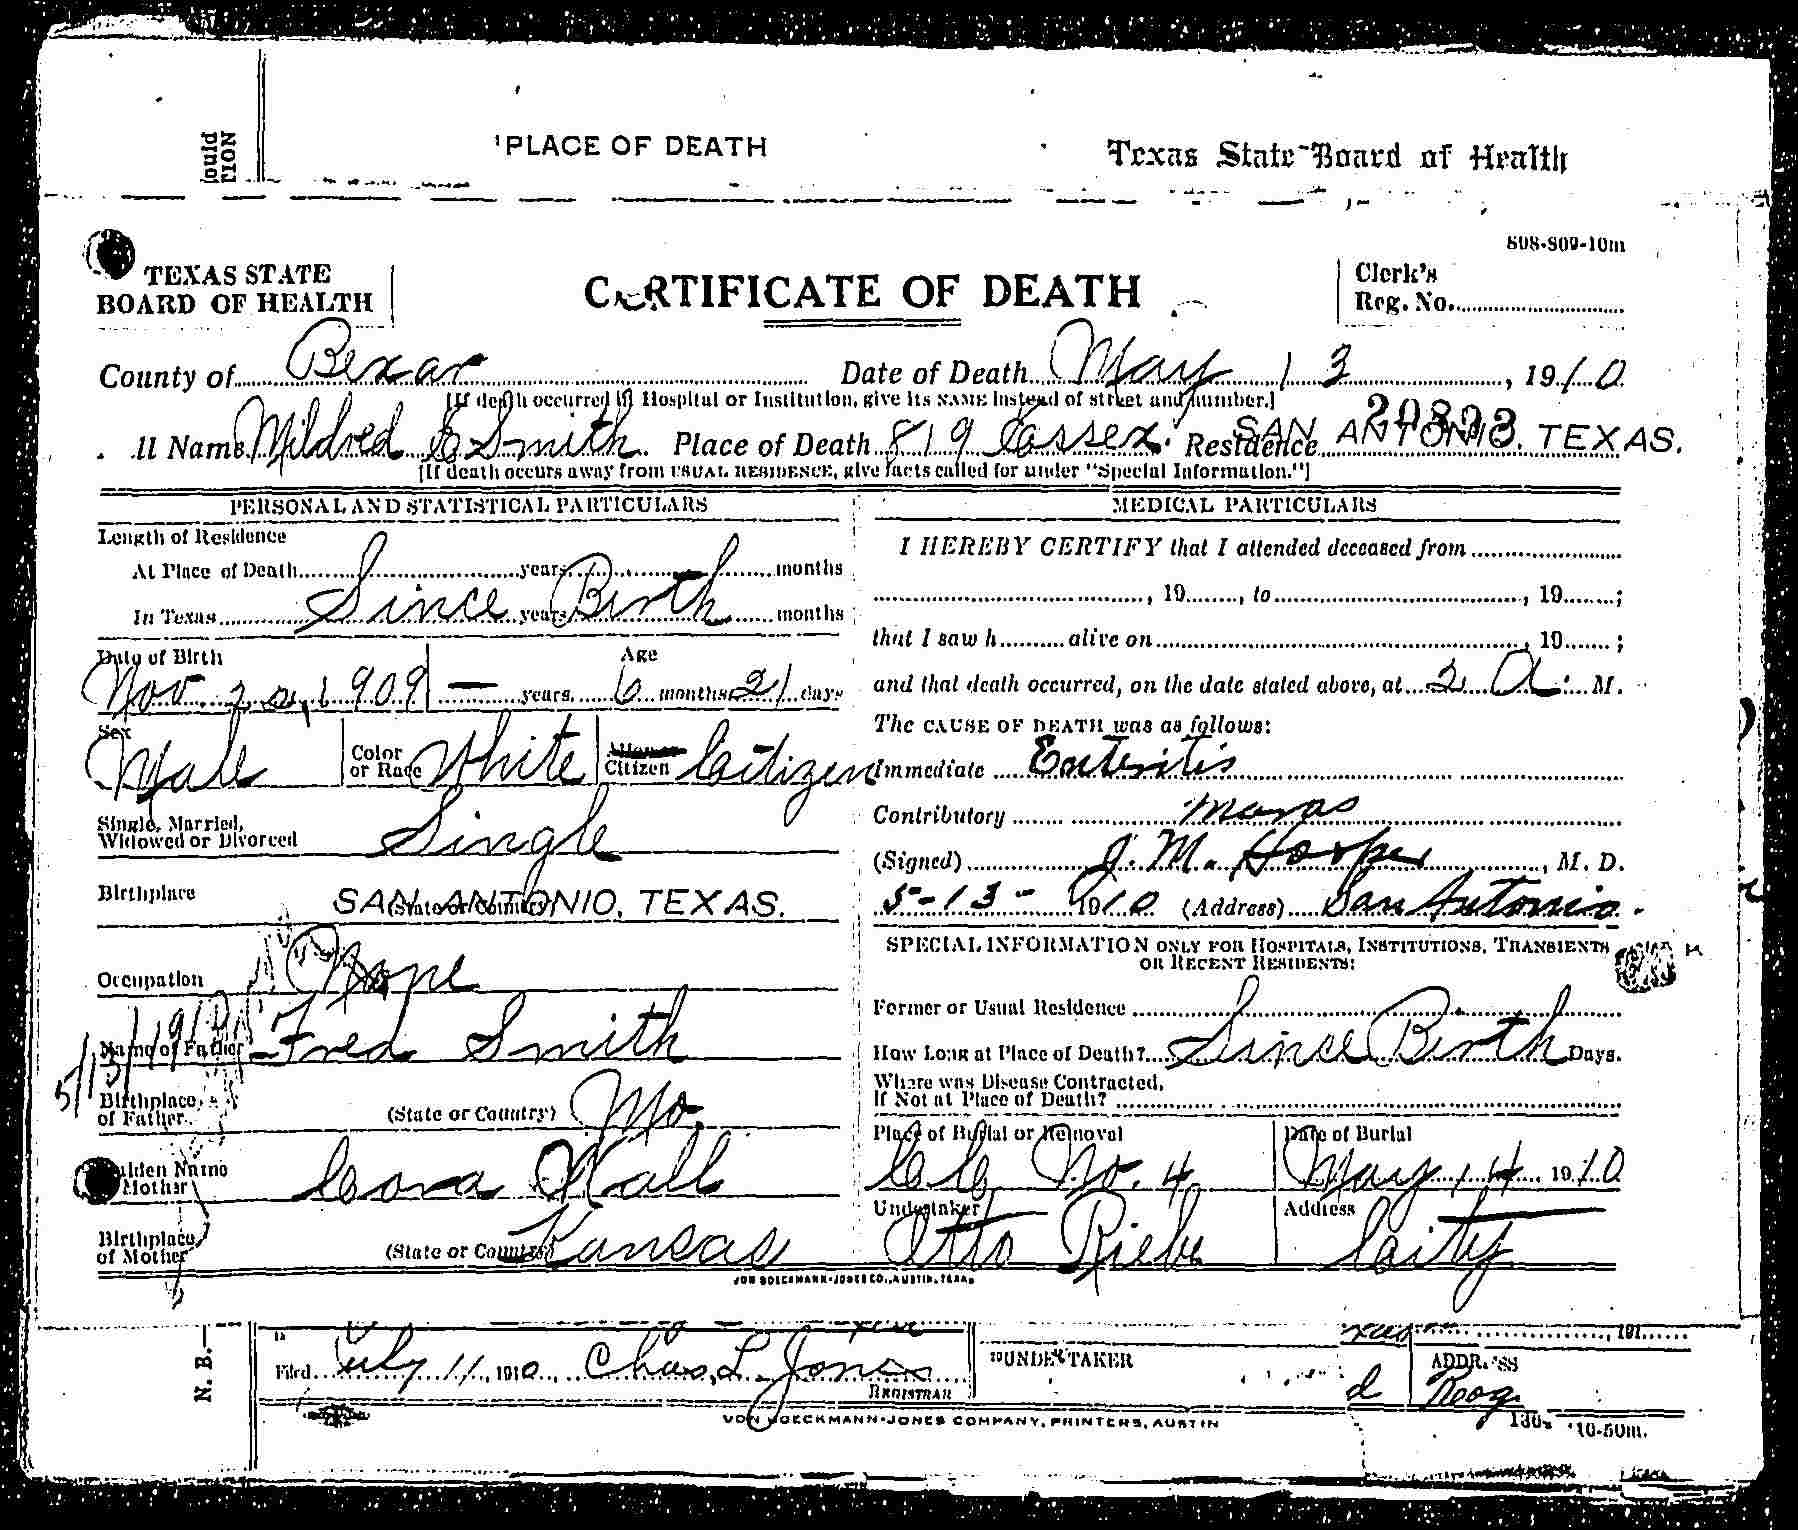 ould
TION
¹PLACE OF DEATH
Texas State Board of Health
808-809-10m
TEXAS STATE
BOARD OF HEALTH
CERTIFICATE OF DEATH
Clerk's
Reg. No.
County of Bexar Date of Death May 13, 1910
[If death occurred in Hospital or Institution, give its NAME instead of street and number.]
20893
ll Name Mildred E Smith. Place of Death 819 Essex. Residence SAN ANTONIO, TEXAS.
[If death occurs away from USUAL RESIDENCE, give facts called for under "Special Information."]
PERSONAL AND STATISTICAL PARTICULARS
Length of Residence
At Place of Death years months
In Texas Since years Birth months
Date of Birth Age
Nov. 22, 1909 — years. 6 months 21 days
Sex
Male Color
or Race White Citizen Citizen
Single, Married,
Widowed or Divorced Single
Birthplace SAN ANTONIO, TEXAS.
(State or Country)
Occupation None
Name of Father Fred Smith
5/13/19
Birthplace
of Father (State or Country) Mo.
aiden Name
Mother Cora Hall
Birthplace
of Mother (State or Country) Kansas
MEDICAL PARTICULARS
I HEREBY CERTIFY that I attended deceased from
, 19 , to , 19 ;
that I saw h alive on , 19 ;
and that death occurred, on the date stated above, at 2 A. M.
The CAUSE OF DEATH was as follows:
Immediate Enteritis
Contributory
(Signed) J. M. Hooper, M. D.
5-13- 1910 (Address) San Antonio.
SPECIAL INFORMATION ONLY FOR HOSPITALS, INSTITUTIONS, TRANSIENTS
OR RECENT RESIDENTS:
Former or Usual Residence
How Long at Place of Death? Since Birth Days.
Where was Disease Contracted,
If Not at Place of Death?
Place of Burial or Removal Date of Burial
CC No. 4 May 14 1910
Undertaker Address
Otto Riebe City
VON BOECKMANN-JONES CO., AUSTIN, TEXAS
N. B.—
Filed July 11, 1910, Chas. L. Jones
REGISTRAR
, 191
²⁰UNDERTAKER
d
ADDRESS
VON BOECKMANN-JONES COMPANY, PRINTERS, AUSTIN
10-50m.